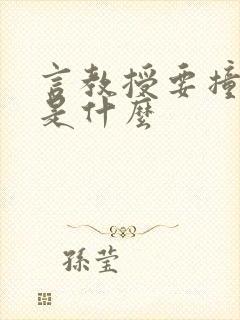 言教授要撞
是什麼
孫瑩